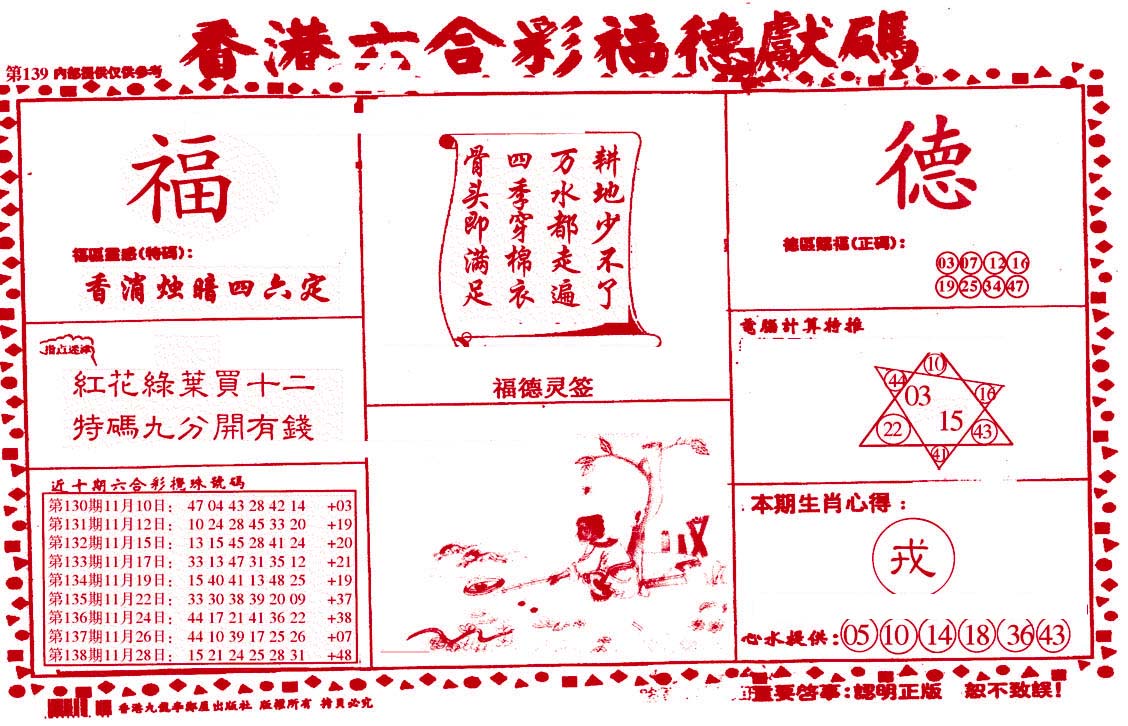 香港六合彩福德獻碼
第139 內部提供仅供參考
福
福區靈感(特碼):
香消烛暗四六定
指点迷津
紅花綠葉買十二
特碼九分開有錢
近十期六合彩攪珠號碼
第130期11月10日: 47 04 43 28 42 14 +03
第131期11月12日: 10 24 28 45 33 20 +19
第132期11月15日: 13 15 45 28 41 24 +20
第133期11月17日: 33 13 47 31 35 12 +21
第134期11月19日: 15 40 41 13 48 25 +19
第135期11月22日: 33 30 38 39 20 09 +37
第136期11月24日: 44 17 21 41 36 22 +38
第137期11月26日: 44 10 39 17 25 26 +07
第138期11月28日: 15 21 24 25 28 31 +48
耕地少不了
万水都走遍
四季穿棉衣
骨头即满足
福德灵签
德
德區賜福(正碼):
03 07 12 16
19 25 34 47
電腦計算特推
10
44 03 16
22 15 43
41
本期生肖心得:
戎
心水提供: 05 10 14 18 36 43
版權所有 拷貝必究
重要啓事:認明正版 恕不致誤!